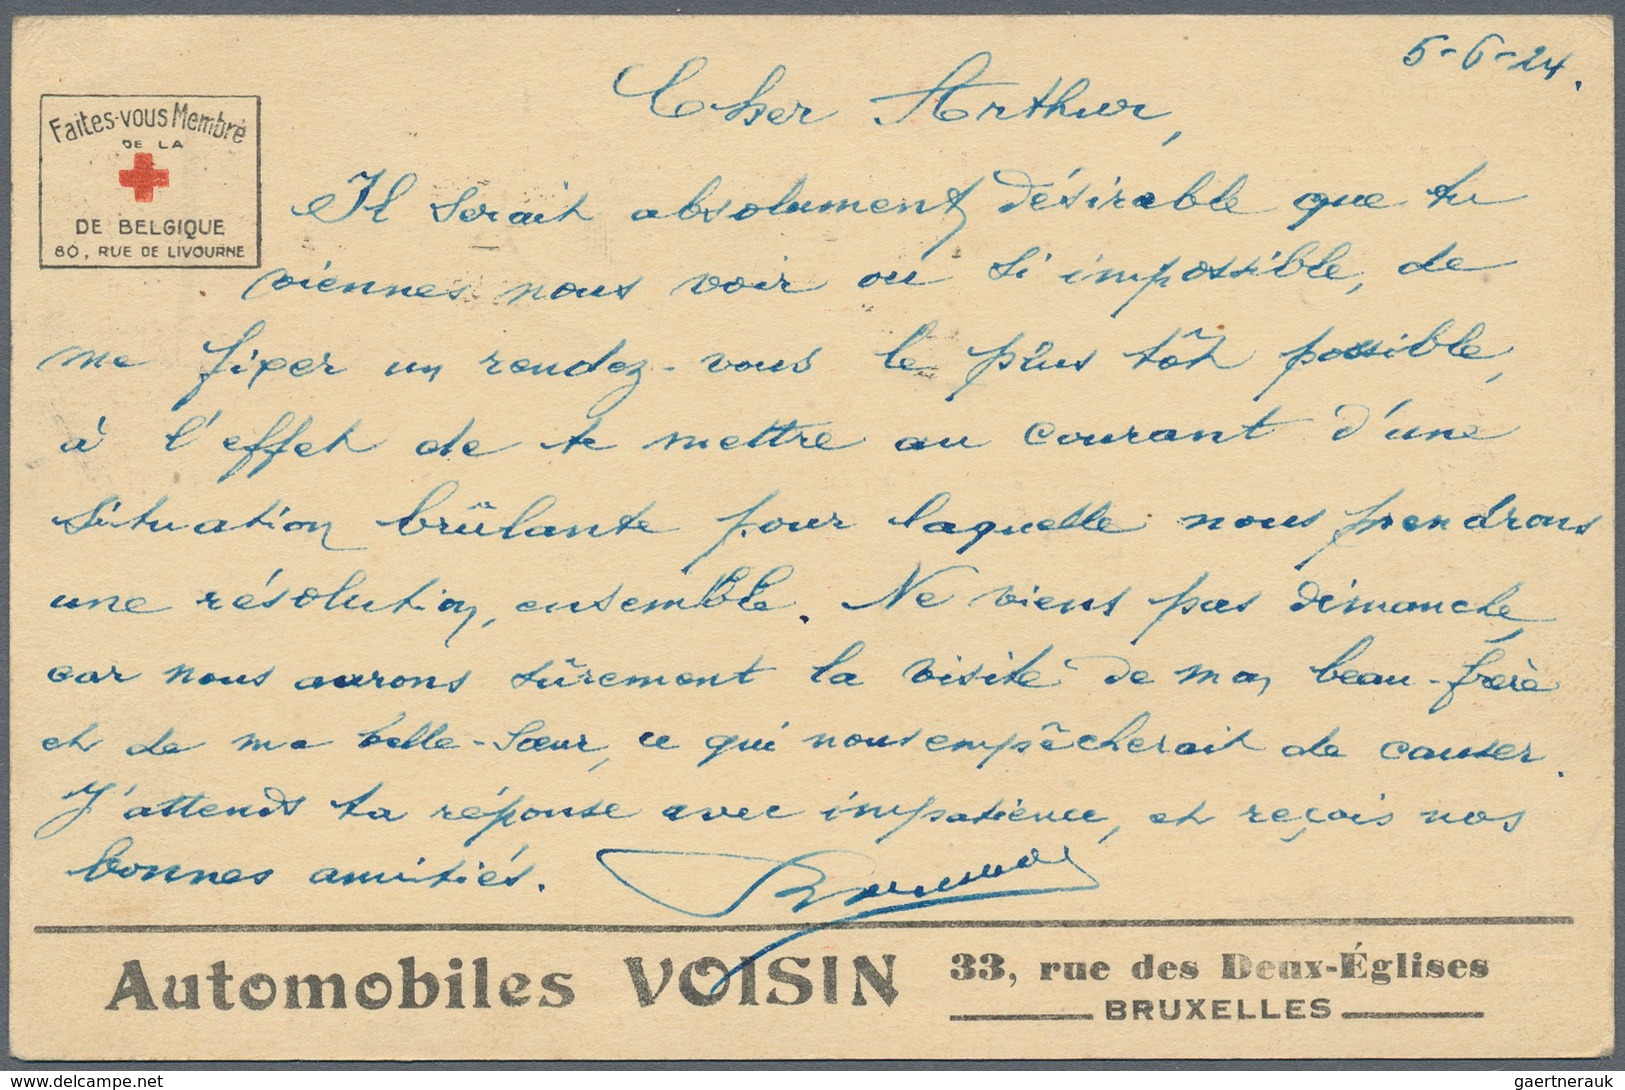 5-6-24.
Cher Arthur,
Faites-vous Membre
DE LA
DE BELGIQUE
80, RUE DE LIVOURNE
Il serait absolument désirable que tu
viennes nous voir ou si impossible, de
me fixer un rendez-vous le plus tôt possible,
à l'effet de te mettre au courant d'une
situation brûlante pour laquelle nous prendrons
une résolution, ensemble. Ne viens pas dimanche,
car nous aurons sûrement la visite de mon beau-frère
et de ma belle-sœur, ce qui nous empêcherait de causer.
J'attends ta réponse avec impatience, et reçois nos
bonnes amitiés.
Automobiles VOISIN
33, rue des Deux-Églises
BRUXELLES
www.delcampe.net
gaertnerauk